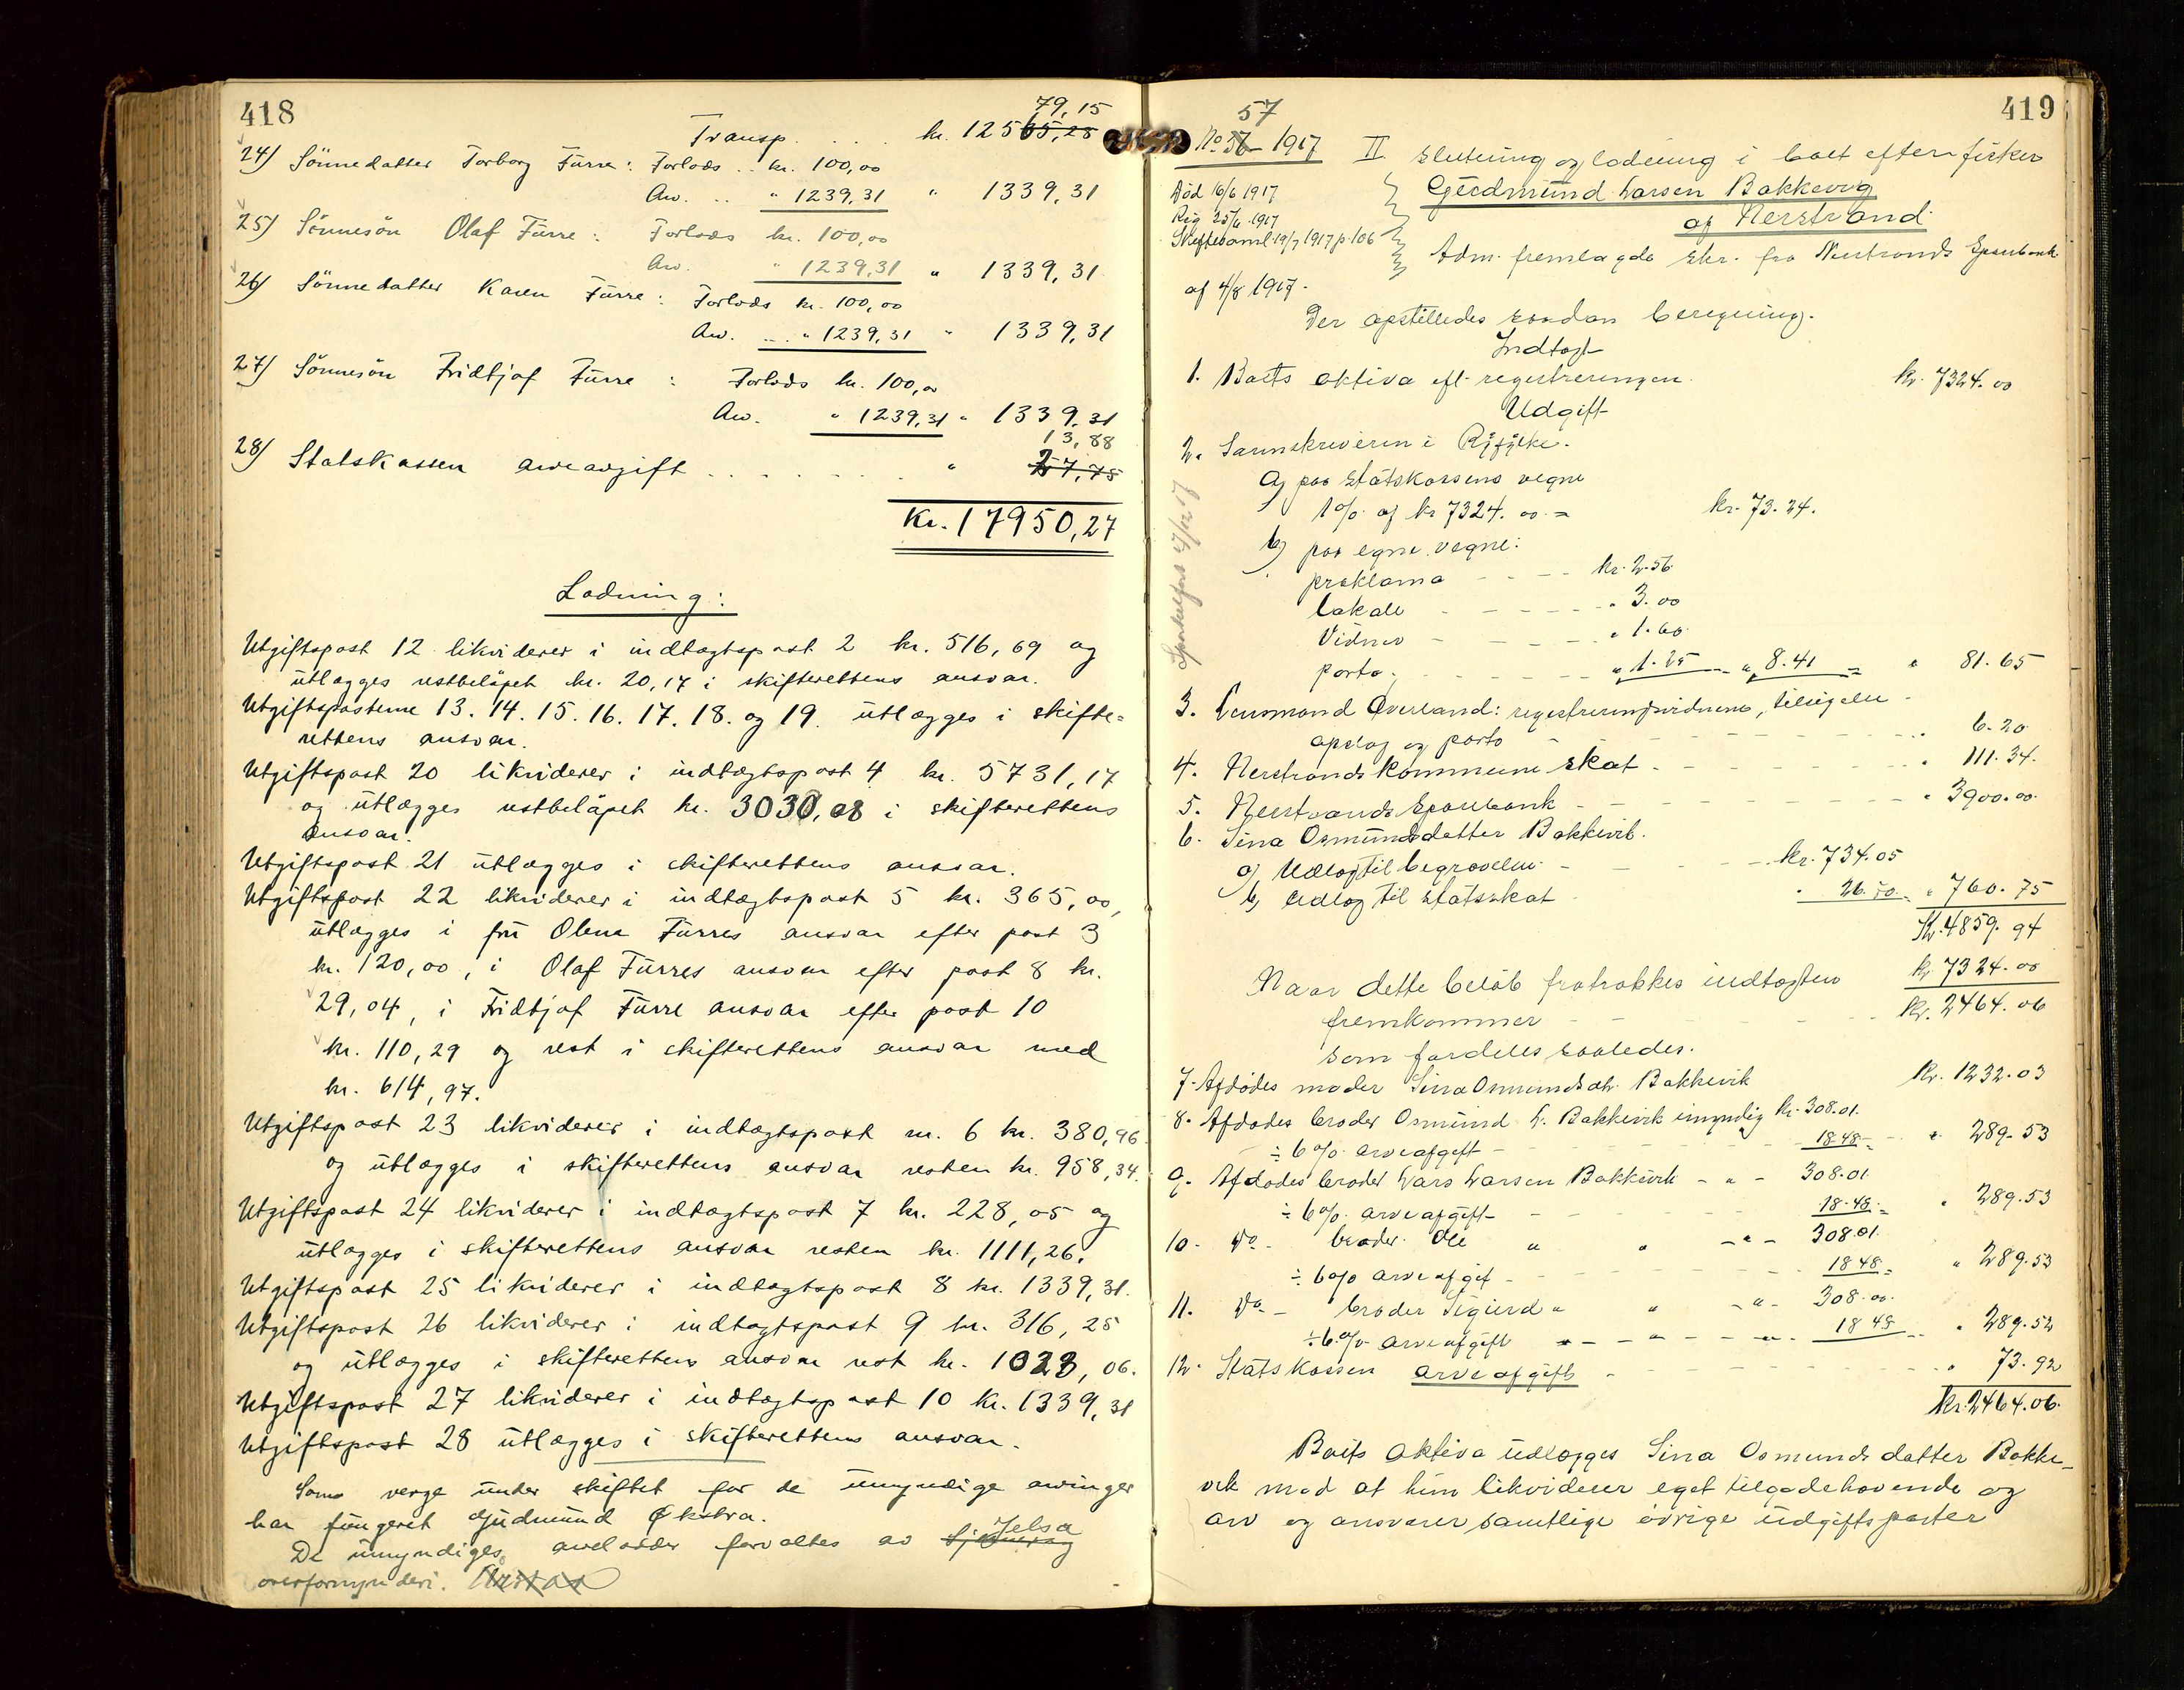 418
79,15
Transp. . . . . kr. 12565,28
24) Sönnedatter Torborg Fürre: Forlods .. kr. 100,00
Arv. . . " 1239,31 " 1339,31
25) Sönnesön Olaf Fürre: Forlods kr. 100,00
Arv. " 1239,31 " 1339,31
26) Sönnedatter Karen Fürre: Forlods kr. 100,00
Arv. ... " 1239,31 " 1339,31
27) Sönnesön Fridtjof Fürre : Forlods kr. 100,00
Arv. " 1239,31 " 1339,31
13,88
28) Statskassen arveavgift . . . . . . " 27,75
Kr. 17950,27
Lodning:
Utgiftspost 12 likviderer i indtægtspost 2 kr. 516,69 og
ütlægges restbelöpet kr. 20,17 i skifterettens ansvar.
Utgiftsposterne 13. 14. 15. 16. 17. 18. og 19. ütlægges i skifte=
rettens ansvar.
Utgiftspost 20 likviderer i indtægtspost 4 kr. 5731,17
og ütlægges restbelöpet kr. 3030,08 i skifterettens
ansvar.
Utgiftspost 21 ütlægges i skifterettens ansvar.
Utgiftspost 22 likviderer i indtægtspost 5 kr. 365,00,
ütlægges i frü Olene Fürres ansvar efter post 3
kr. 120,00, i Olaf Fürres ansvar efter post 8 kr.
29,04, i Fridtjof Fürre ansvar efter post 10
kr. 110,29 og rest i skifterettens ansvar med
kr. 614,97.
Utgiftspost 23 likviderer i indtægtspost nr. 6 kr. 380,96
og ütlægges i skifterettens ansvar resten kr. 958,34.
Utgiftspost 24 likviderer i indtægtspost 7 kr. 228,05 og
ütlægges i skifterettens ansvar resten kr. 1111,26.
Utgiftspost 25 likviderer i indtægtspost 8 kr. 1339,31.
Utgiftspost 26 likviderer i indtægtspost 9 kr. 316,25
og ütlægges i skifterettens ansvar rest kr. 1023,06.
Utgiftspost 27 likviderer i indtægtspost 10 kr. 1339,31
Utgiftspost 28 ütlægges i skifterettens ansvar.
Som verge ünder skiftet for de ümyndige arvinger
har füngeret Gudmünd Økstra.
Jelsa
De ümyndiges arvelodder forvaltes av
overformynderi.
419
57
No 56 - 1917
II Slutning og lodning i boet efter fisker
Güdmünd Larsen Bakkevig
af Nerstrand
Död 16/6 1917
Rig 25/6 1917
Skiftesaml 19/7 1917 p. 106
Adm. fremlagde skr. fra Nerstrands Sparebank
af 4/8 1917.
Der opstilledes saadan beregning.
Indtægt
1. Boets aktiva eft. registreringen. kr. 7324.00
Udgift
2. Sorenskriveren i Ryfylke.
a) paa Statskassens vegne
1% af kr 7324.00 = kr. 73.24.
b) paa egne vegne:
proklama - - - - kr. 2.56
lokale - - - - - " 3.00
Vidner - - - - " 1.60
porto. - - - - - " 1.25 - " 8.41 = " 81.65
3. Lensmand Överland: registreringsvidnerne, tilsigelse
opslag og porto - - - - - " 6.20
4. Nerstrands kommune skat - - - - " 111.34.
5. Neerstrands Sparebank - - - - " 3900.00.
6. Sina Osmündsdatter Bakkevik.
a) Udlæg til begravelsen - - - - kr. 734.05
b) Udlæg til statsskat " 26.70 " 760.75
Kr. 4859.94
kr 7324.00
Naar dette belöb fratrækkes indtægten
fremkommer - - - - kr. 2464.06
som fordeles saaledes.
7. Afdödes moder Sina Osmundsdtr. Bakkevik kr. 1232.03
8. Afdödes broder Osmünd L. Bakkevik ümyndig kr. 308.01.
÷ 6% arveafgift - - - 18.48 - " 289.53
9. Afdödes broder Lars Larsen Bakkevik - " - 308.01
÷ 6% arveafgift - - - 18.48 = " 289.53
10. Do - broder Ole " " - " - 308.01.
÷ 6% arveafgift - - - 18.48 = " 289.53
11. Do - broder Sigurd " " - " - 308.00.
÷ 6% arveafgift - - - 18.48 " 289.52
12. Statskassen arveafgift - - - " 73.92
kr. 2464.06.
Boets aktiva üdlægges Sina Osmundsdatter Bakke-
vik mod at hün likviderer eget tilgodehavende og
arv og ansvarer samtlige övrige üdgiftsposter